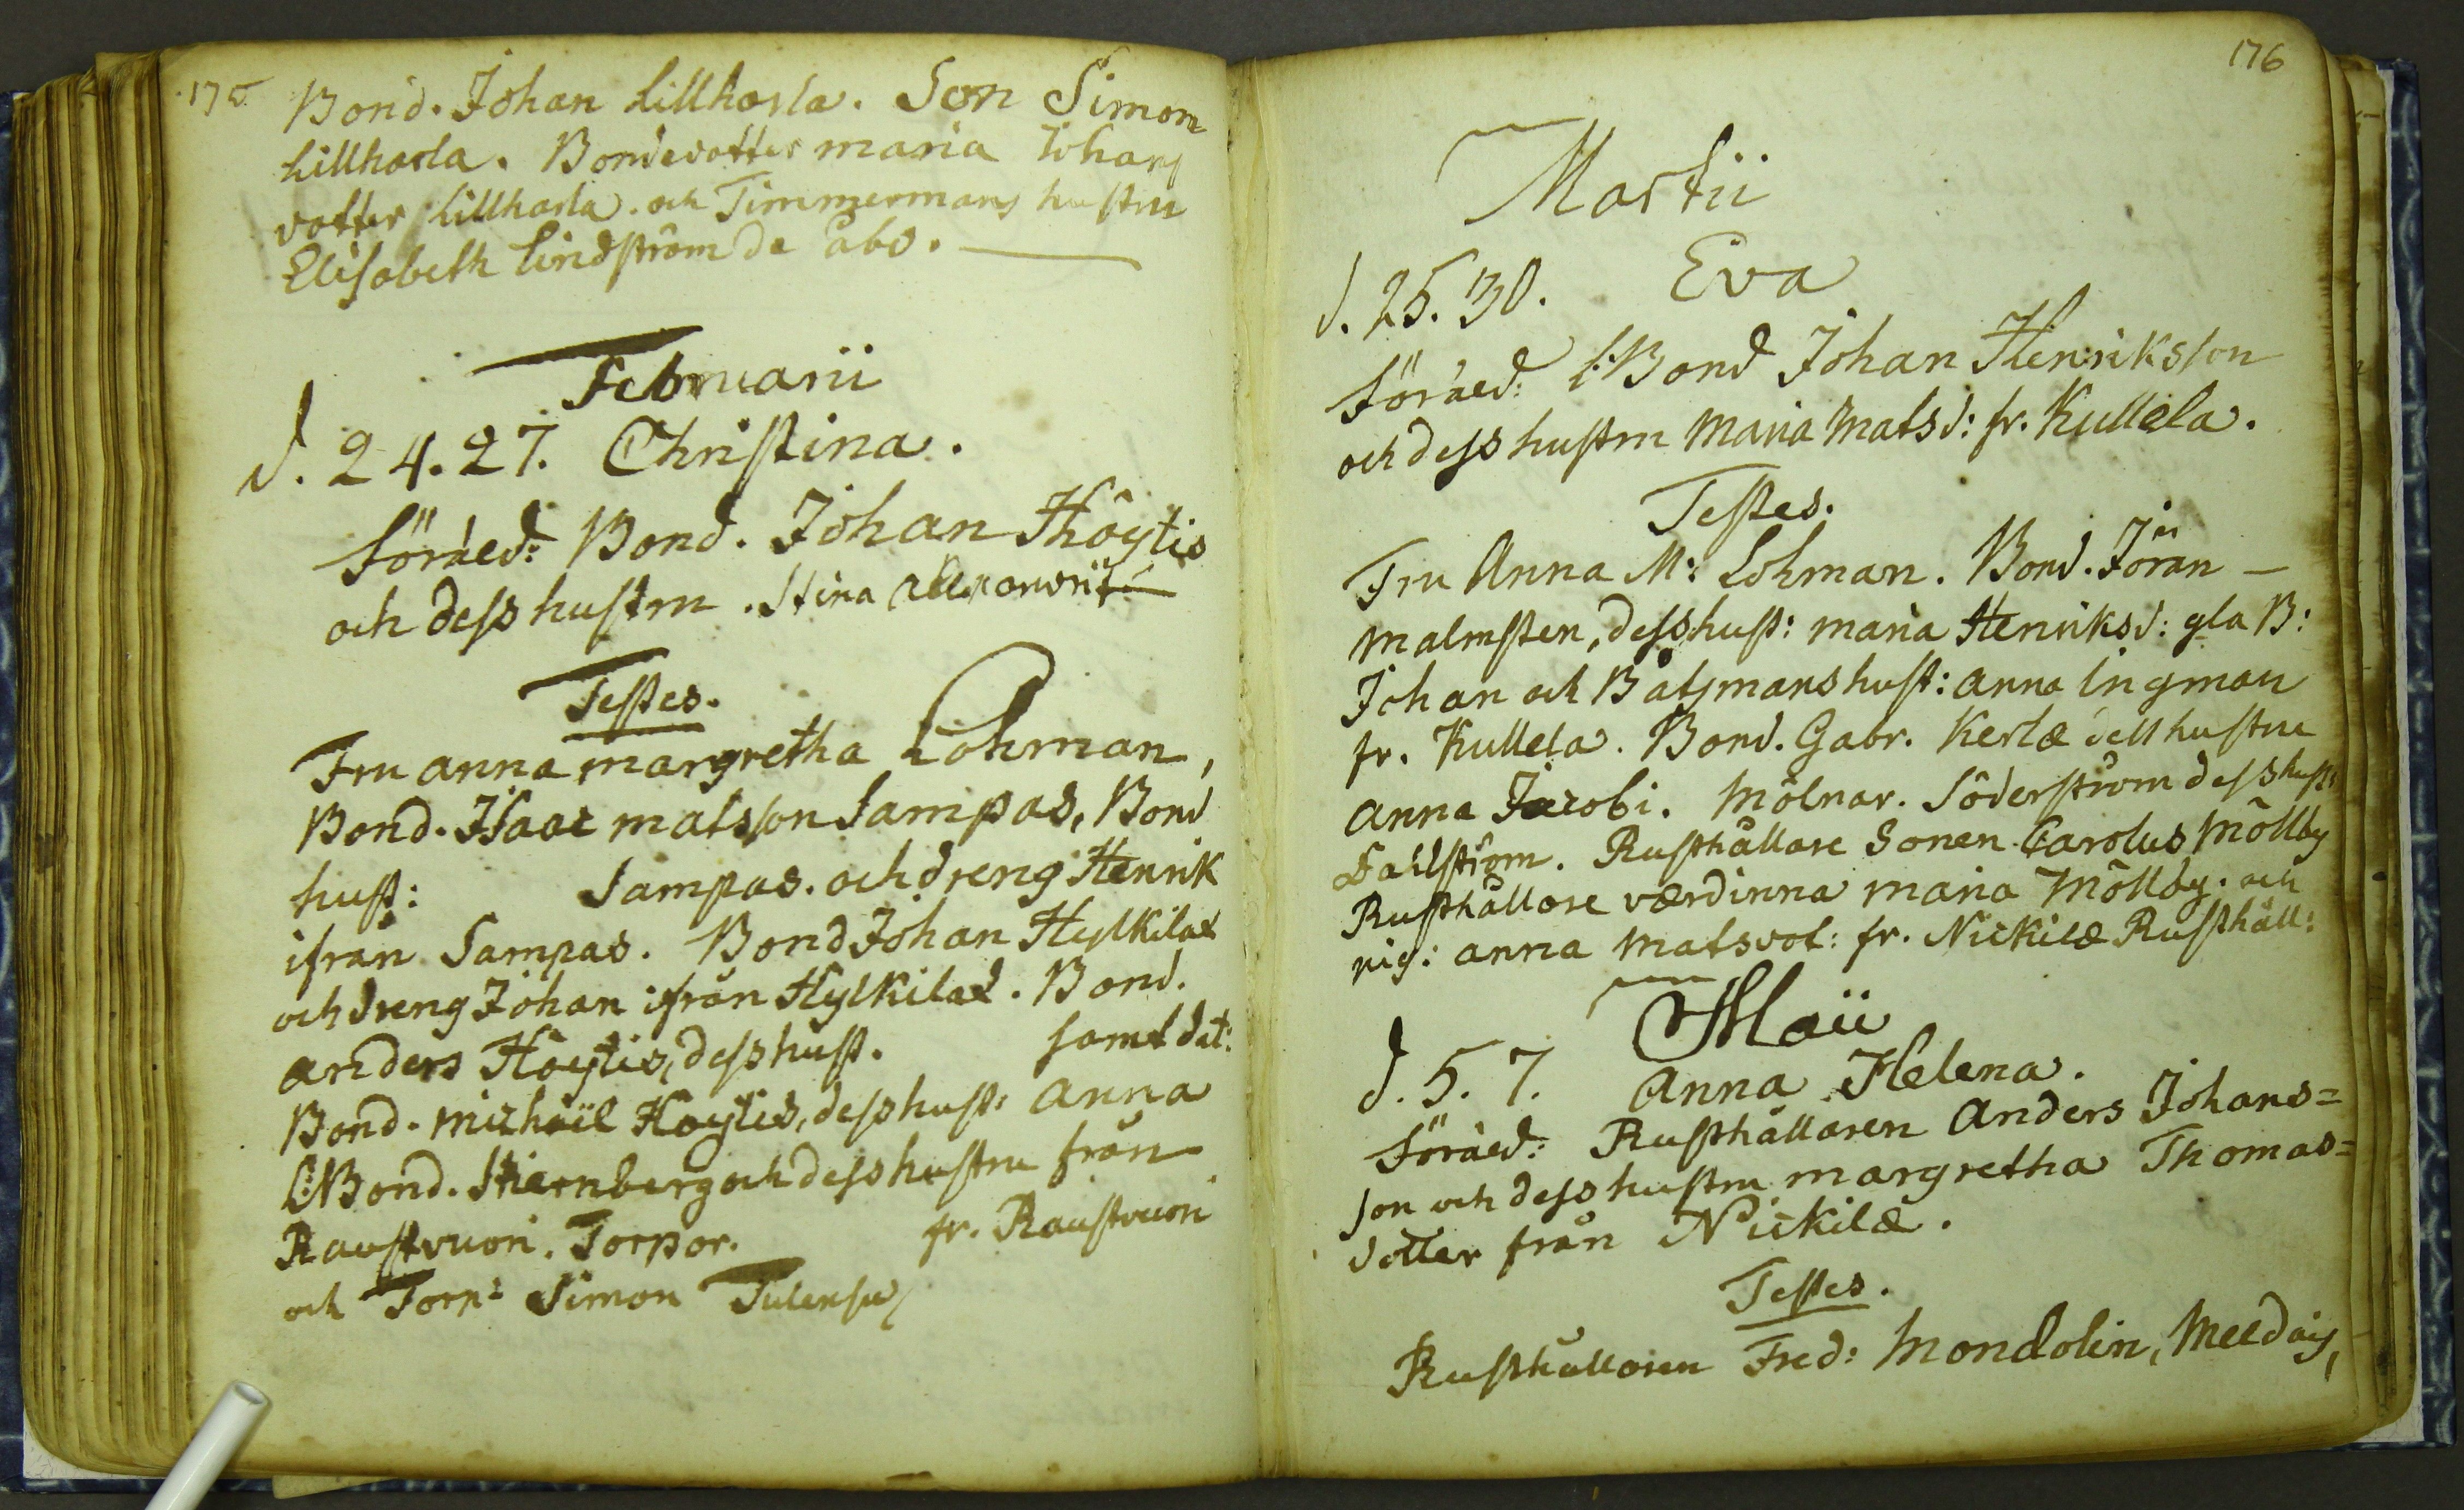 175
Bond. Johan Lillharla. Son Simon
Lillharla. Bondedotter maria Johans
dotter Lillharla. och Timmermans hustru
Elisabeth Lindström de åbo.
Februarii
d. 24. 27. Christina.
Föräld: Bond. Johan Höytis
och dess hustru. Stina
Testes.
Fru anna margretha Lohman,
Bond. Isaac matsson Sampas, Bond
hust: Sampas. och dreng Henrik
ifrån Sampas. Bond Johan Hylkilæ
och dreng Johan ifrån Hylkilæ. Bond.
anders Höytis, dess hust. samt det:
Bond. michaël Höytis, dess hust: anna
L:Bond. Stiernberg och dess hustru från
Raustvuori. Torpar. fr. Raustvuori
och Torp: Simon
176
Martii
d. 25. 30. Eva
Föräld: L:Bond Johan Henriksson
och dess hustru Maria Matsd: fr. Kullela.
Testes.
Fru Anna M: Lohman. Bond. Jöran
malmsten, dess hust: maria Henriksd: gla B:
Johan och Båtsmans hust: anna Lingman
fr. Kullela. Bond. Gabr. Kerlæ dess hustru
anna Jacobi. Mölnar. Söderström dess hust:
Dahlström. Rusthållare Sonen Carolus Möllby
Rusthållare værdinna maria Möllby. och
pig: anna matsdot: fr. Nickilæ Rusthåll:
Maii
d. 5. 7. anna Helena.
Föräld: Rusthållaren Anders Johans=
son och dess hustru margretha Thomas=
dotter från Nickilæ.
Testes.
Rusthållaren Fred: Mondolin,